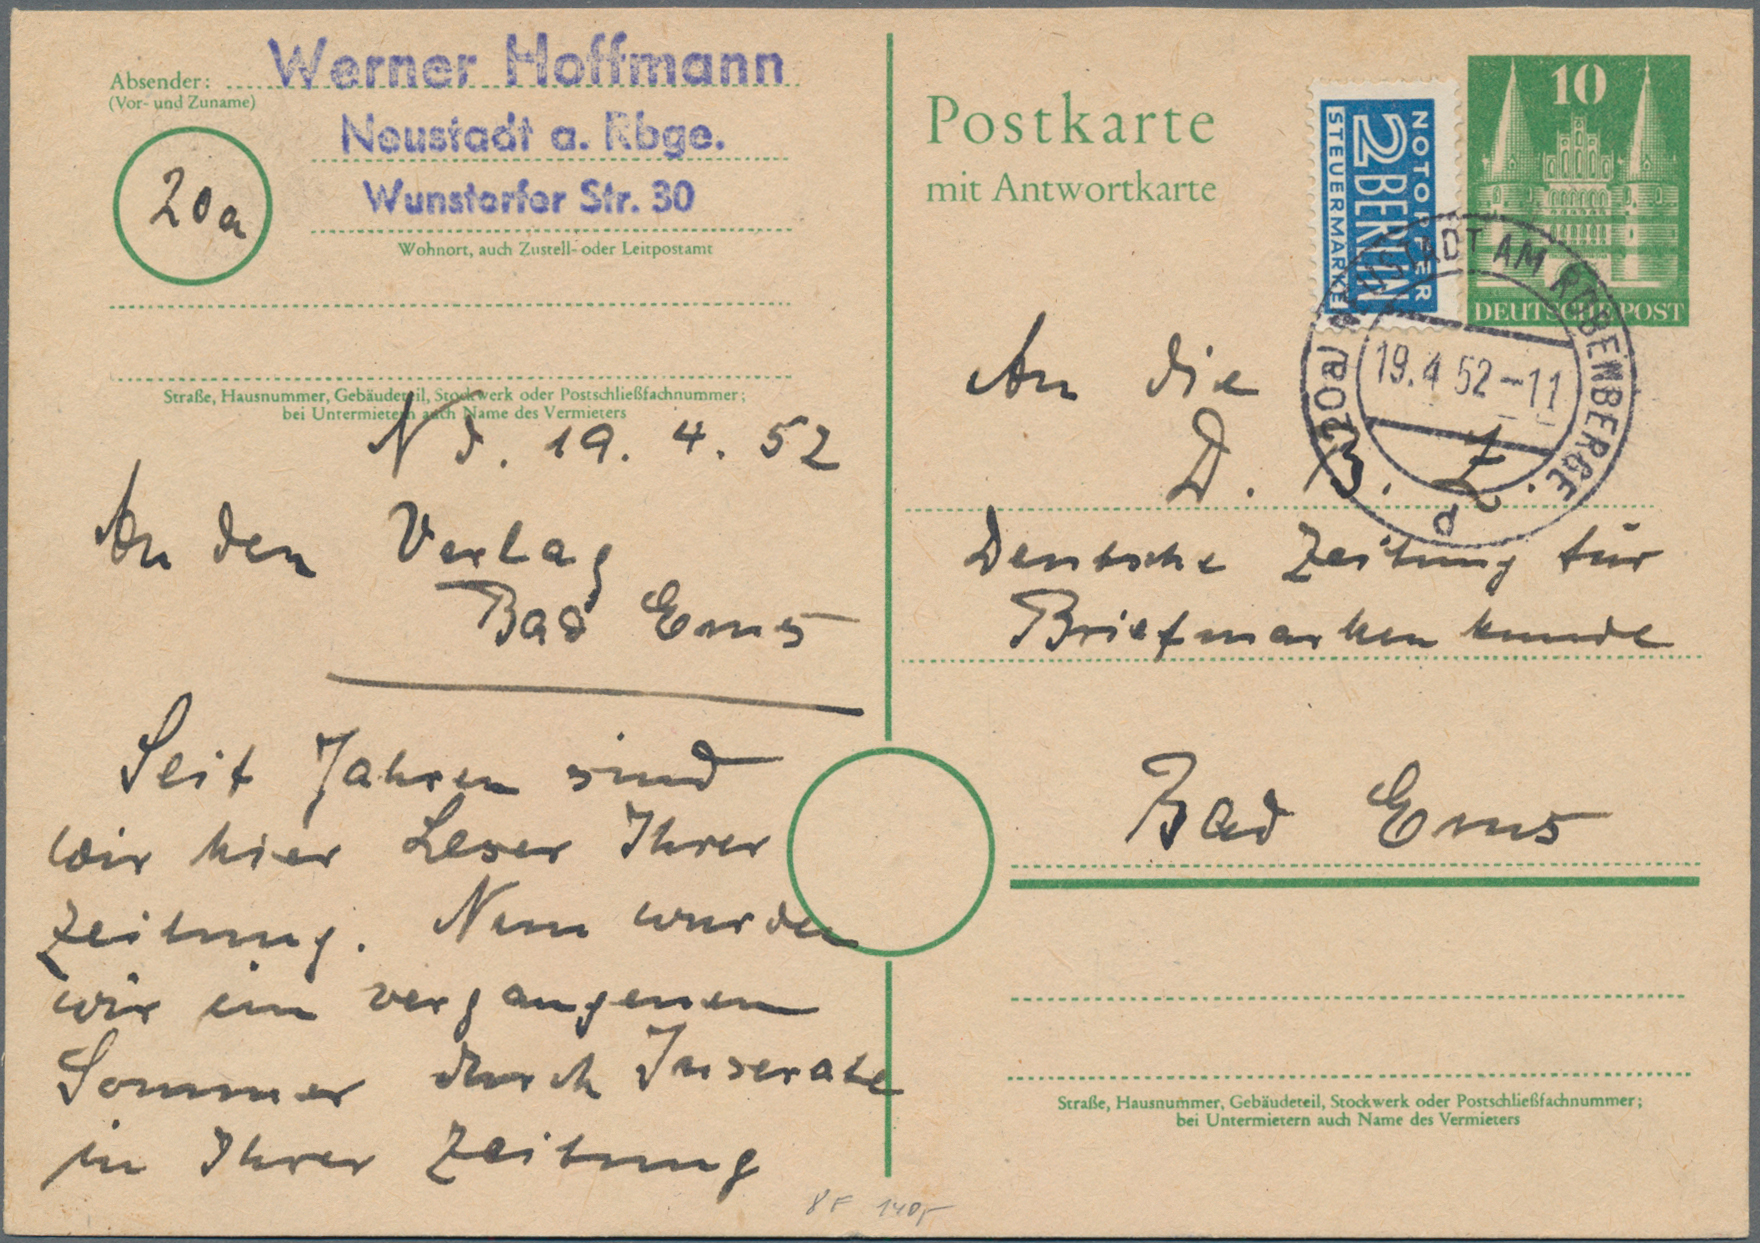 Absender:
(Vor- und Zuname)
Werner Hoffmann
Neustadt a. Rbge.
Wunstorfer Str. 30
20a
Wohnort, auch Zustell- oder Leitpostamt
Straße, Hausnummer, Gebäudeteil, Stockwerk oder Postschließfachnummer;
bei Untermietern auch Name des Vermieters
Nd. 19. 4. 52
An den Verlag
Bad Ems
Seit Jahren sind
wir hier Leser Ihrer
Zeitung. Nun wurden
wir im vergangenen
Sommer durch Inserate
in Ihrer Zeitung
8F 140,-
Postkarte
mit Antwortkarte
NOTOPFER
2 BERLIN
STEUERMARKE
10
DEUTSCHE POST
(20a) NEUSTADT AM RÜBENBERGE
19.4.52-11
d
An die
D. B. Z.
Deutsche Zeitung für
Briefmarkenkunde
Bad Ems
Straße, Hausnummer, Gebäudeteil, Stockwerk oder Postschließfachnummer;
bei Untermietern auch Name des Vermieters